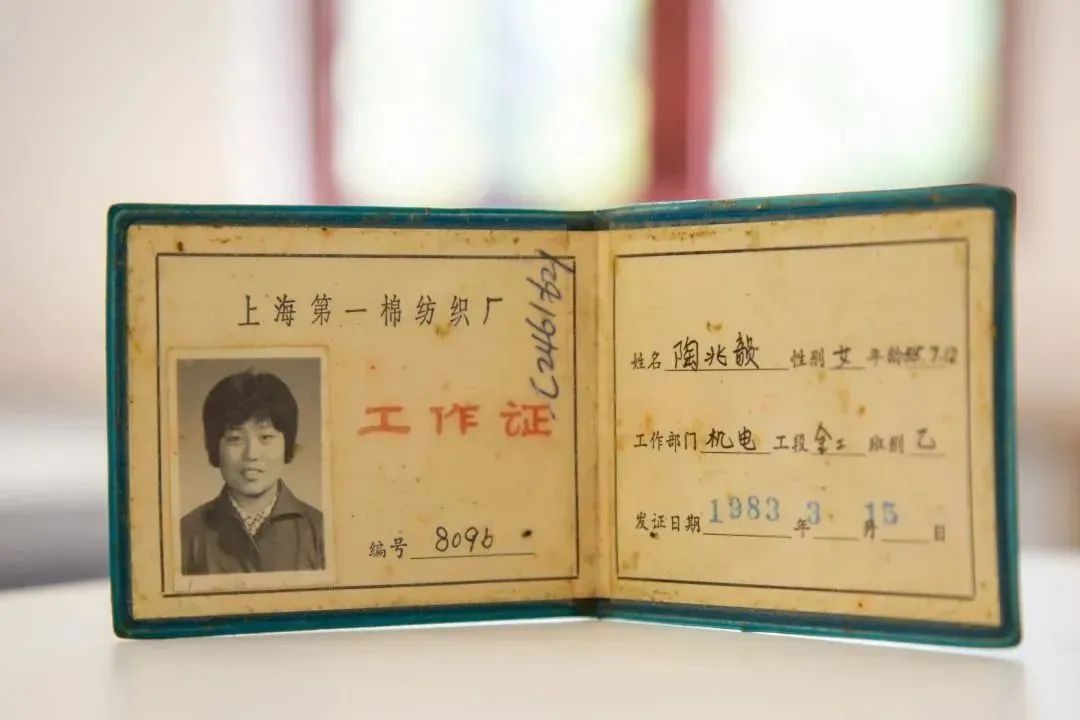 上海第一棉纺织厂
工作证
编号 8096
姓名 陶兆毅 性别 女 年龄
工作部门 机电 工段 金工 班别 乙
发证日期 1983 年 3 月 15 日